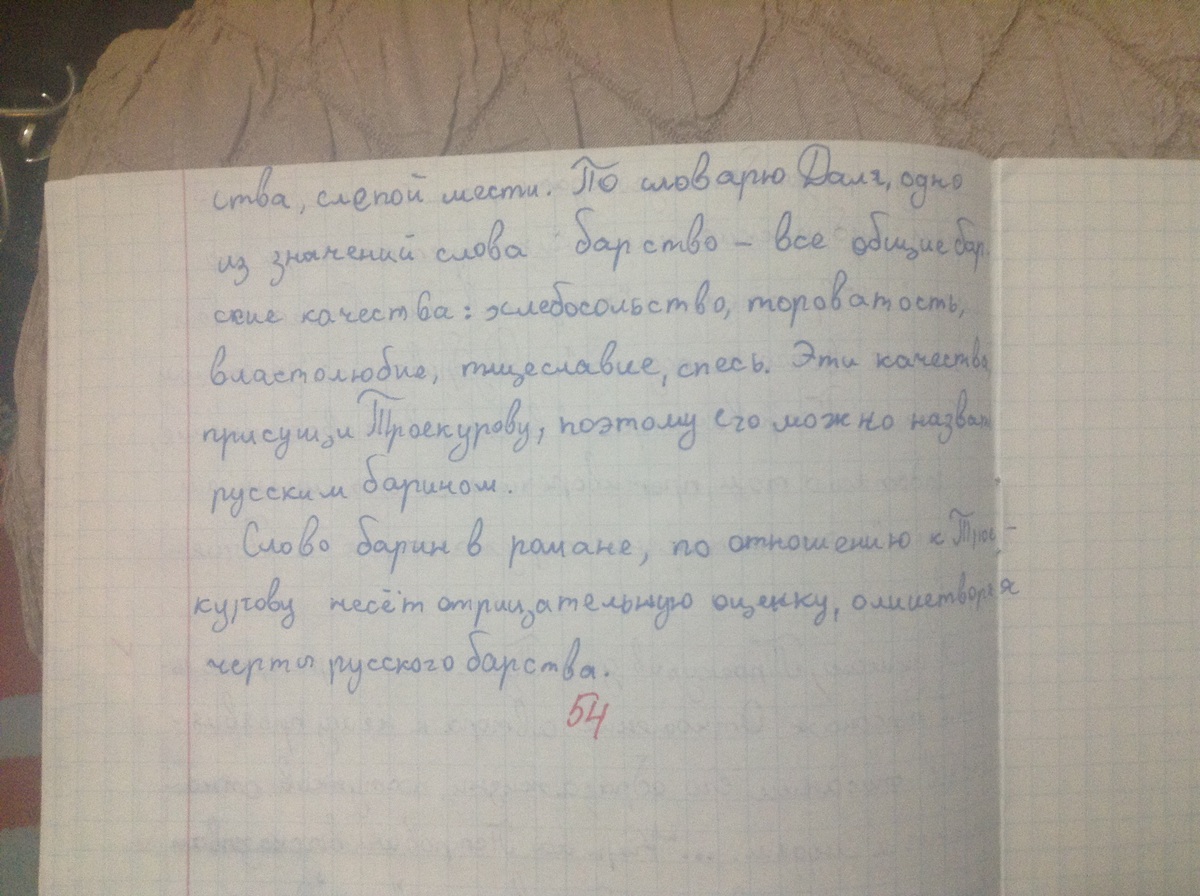 ства, слепой мести. По словарю Даля, одно
из значений слова барство – все общие бар-
ские качества: хлебосольство, тороватость,
властолюбие, тщеславие, спесь. Эти качества
присущи Троекурову, поэтому его можно назвать
русским барином.
Слово барин в романе, по отношению к Трое-
курову несёт отрицательную оценку, олицетворяя
черты русского барства.
54